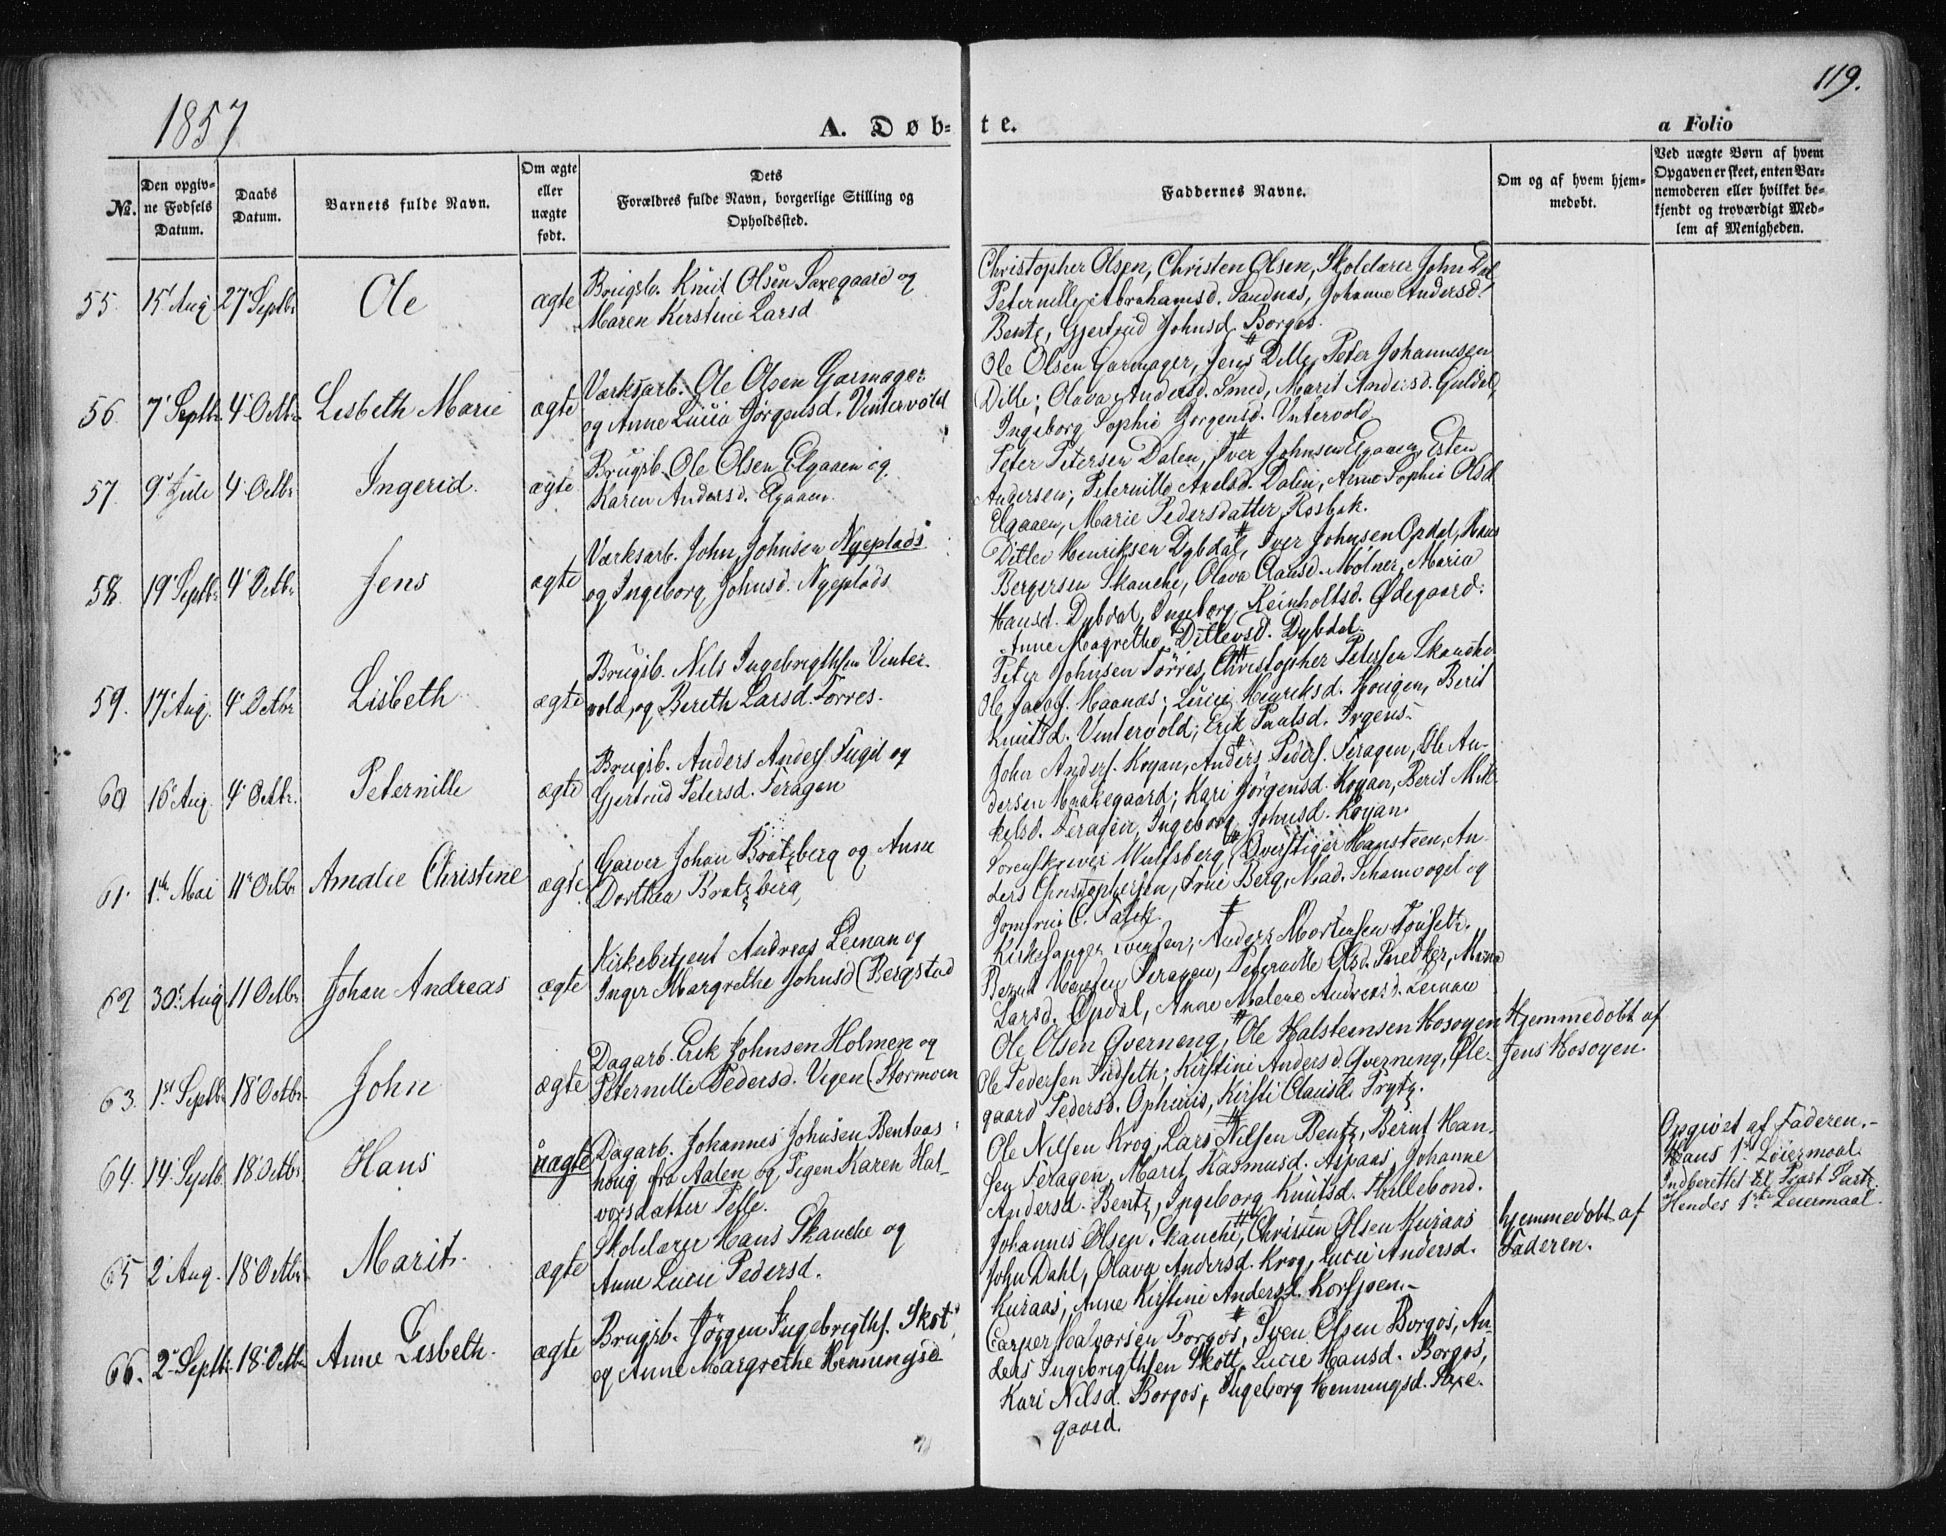 1857
119.
A. Døb-
te.
a Folio
No.
Den opgiv-
ne Fødsels
Datum.
Daabs
Datum.
Barnets fulde Navn.
Om ægte
eller
uægte
født.
Dets
Forældres fulde Navn, borgerlige Stilling og
Opholdssted.
Faddernes Navne.
Om og af hvem hjem-
medøbt.
Ved uægte Børn af hvem
Opgaven er skeet, enten Bar-
nemoderen eller hvilket be-
kjendt og troværdigt Med-
lem af Menigheden.
55. 15 Aug. 27 Septbr. Ole ægte
Brugsb. Knut Olsen Saxegaard og
Maren Kirstine Larsd
Christopher Olsen, Christen Olsen, Skolelærer John Dal
Peternille Abrahamsd. Sandnæs, Johanne Andersd.
Bentz, Gjertrud Johnsd. Borgos.
56. 7 Septbr. 4 Octbr. Lisbeth Marie ægte
Værksarb. Ole Olsen Garmager
og Anne Lucia Jörgensd. Vintervold
Ole Olsen Garmager, Jens Dille, Peter Johannesen
Dille; Olava Andersd. Smed, Marit Andersd. Guldal,
Ingeborg Sophie Jorgensd. Vintervold
57. 9 Juli 4 Octbr. Ingerid. ægte
Brugsb. Ole Olsen Elgaaen og
Karen Andersd. Elgaaen
Peter Petersen Dalen, Iver Johnsen Elgaaen, Esten
Andersen; Peternille Axelsd. Dalen, Anne Sophie Olsd
Elgaaen, Marie Pedersdatter Rosbak.
58. 19 Septbr. 4 Octbr. Jens ægte
Værksarb. John Johnsen Nyeplads
og Ingeborg Johnsd. Nyeplads
Ditlev Henriksen Dybdal, Iver Johnsen Opdal, Hans
Bergersen Skanche, Olava Clausd. Mölner, Maria
Hansd. Dybdal, Ingeborg Reinholtsd. Ødegaard.
Anne Magrethe Ditlevsd. Dybdal
59. 17 Aug. 4 Octbr Lisbeth ægte
Brugsb. Nils Ingebrigthsen Vinter-
vold, og Bereth Larsd. Torres.
Peter Johnsen Törres, Christopher Petersen Skancke
Ole Jacobs. Haanæs; Lucie Henriksd. Hougen, Berit
Knutsd. Vintervold; Erik Paulsd. Irgens.
60 16 Aug. 4 Octbr. Peternille ægte
Brugsb. Anders Anders. Fugil og
Gjertrud Petersd. Feragen
John Anders. Koyan, Anders Peders. Feragen, Ole An-
dersen Haakegaard; Kari Jörgensd. Koyan, Berit Mik-
kelsd. Feragen, Ingeborg Johnsd. Koyan.
61. 1ste Mai 11te Octbr. Amalie Christine ægte
Garver Johan Bratzberg og Anne
Dorthea Bratzberg
Sorenskriver Wulfsberg, Overstiger Hansteen, An-
ders Christophersen, Frue Berg, Mad. Schanvogel og
Jomfrue C. Falck.
62 30 Aug. 11 Octbr. Johan Andreas ægte
Kirkebetjent Andreas Leman og
Inger Margrethe Johnsd (Bergstad
Kirkesanger Svensen, Anders Mortensen Tönseth.
Bernt Hansen Feragen, Peternille Olsd. Snedker, Maria
Larsd. Opdal, Anne Malene Andreasd. Leman
63. 1ste Septbr. 18 Octbr. John ægte
Dagarb. Erik Johnsen Holmen og
Peternille Pedersd. Vegen (Stormoen
Ole Olsen Gverneng, Ole Halsteinsen Hosoyen
Ole Pedersen Sudseth; Kirstine Andersd. Gverneng, Ole-
gaard Pedersd. Ophuus, Kirsti Clausd. Trytz.
Hjemmedobt af
Jens Hosoyen.
64. 14 Septb. 18 Octbr. Hans uægte
Dagarb. Johannes Johnsen Bentaas
houg fra Aalen og Pigen Karen Hal-
vorsdatter Telle.
Ole Nilsen Krog, Lars Nilsen Bentz, Bernt Han-
sen Feragen, Marit Rasmusd. Aspaas, Johanne
Andersd. Bentz, Ingeborg Knutsd. Hullebond.
Opgivet af Faderen.-
Hans 1ste Leiermaal.
Indberettet til Provst Parti.
Hendes 1ste Leiermaal.
65 2 Aug. 18 Octbr. Marit. ægte
Skolelærer Hans Skanche og
Anne Lucie Pedersd.
Johannes Olsen Skanche, Christen Olsen Kuraas
John Dahl, Olava Andersd. Krog, Lucie Andersd.
Kuraas, Anne Kirstine Andersd. Korssjoen.-
hjemmedobt af
Faderen.
66. 2 Septbr. 18 Octbr. Anne Lisbeth. ægte
Brugsb. Jörgen Ingebrigths. Skot
og Anne Margrethe Henningsd
Casper Halvorsen Borgos, Sven Olsen Borgos, An-
ders Ingebrigthsen Skott, Lucie Hansd. Borgos,
Kari Nilsd. Borgos, Ingeborg Henningsd. Saxe-
gaard.